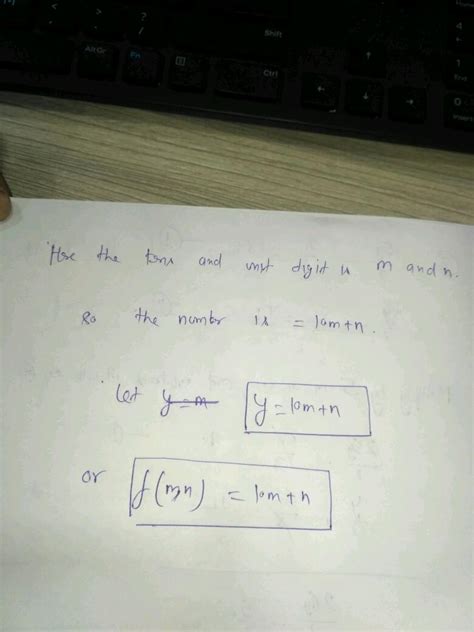 AltGr
Fn
Ctrl
Shift
Home
4
1
End
0
Insert
Here the tens and unit digit is m and n.
So the number is = 10m+n.
Let y=m y=10m+n
or f(m,n) = 10m+n